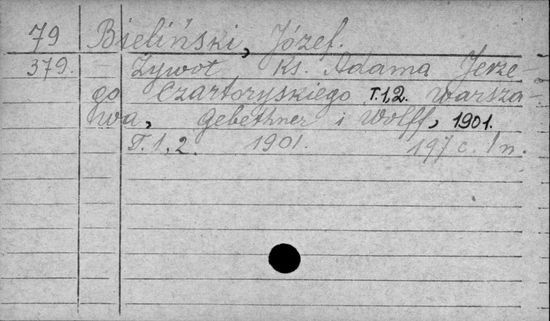 79 Bieliński, Józef.
379. - Żywot Ks. Adama Jerze
go Czartoryskiego T.1,2. Warsza-
wa, Gebethner i Wolff, 1901.
T.1,2. 1901.